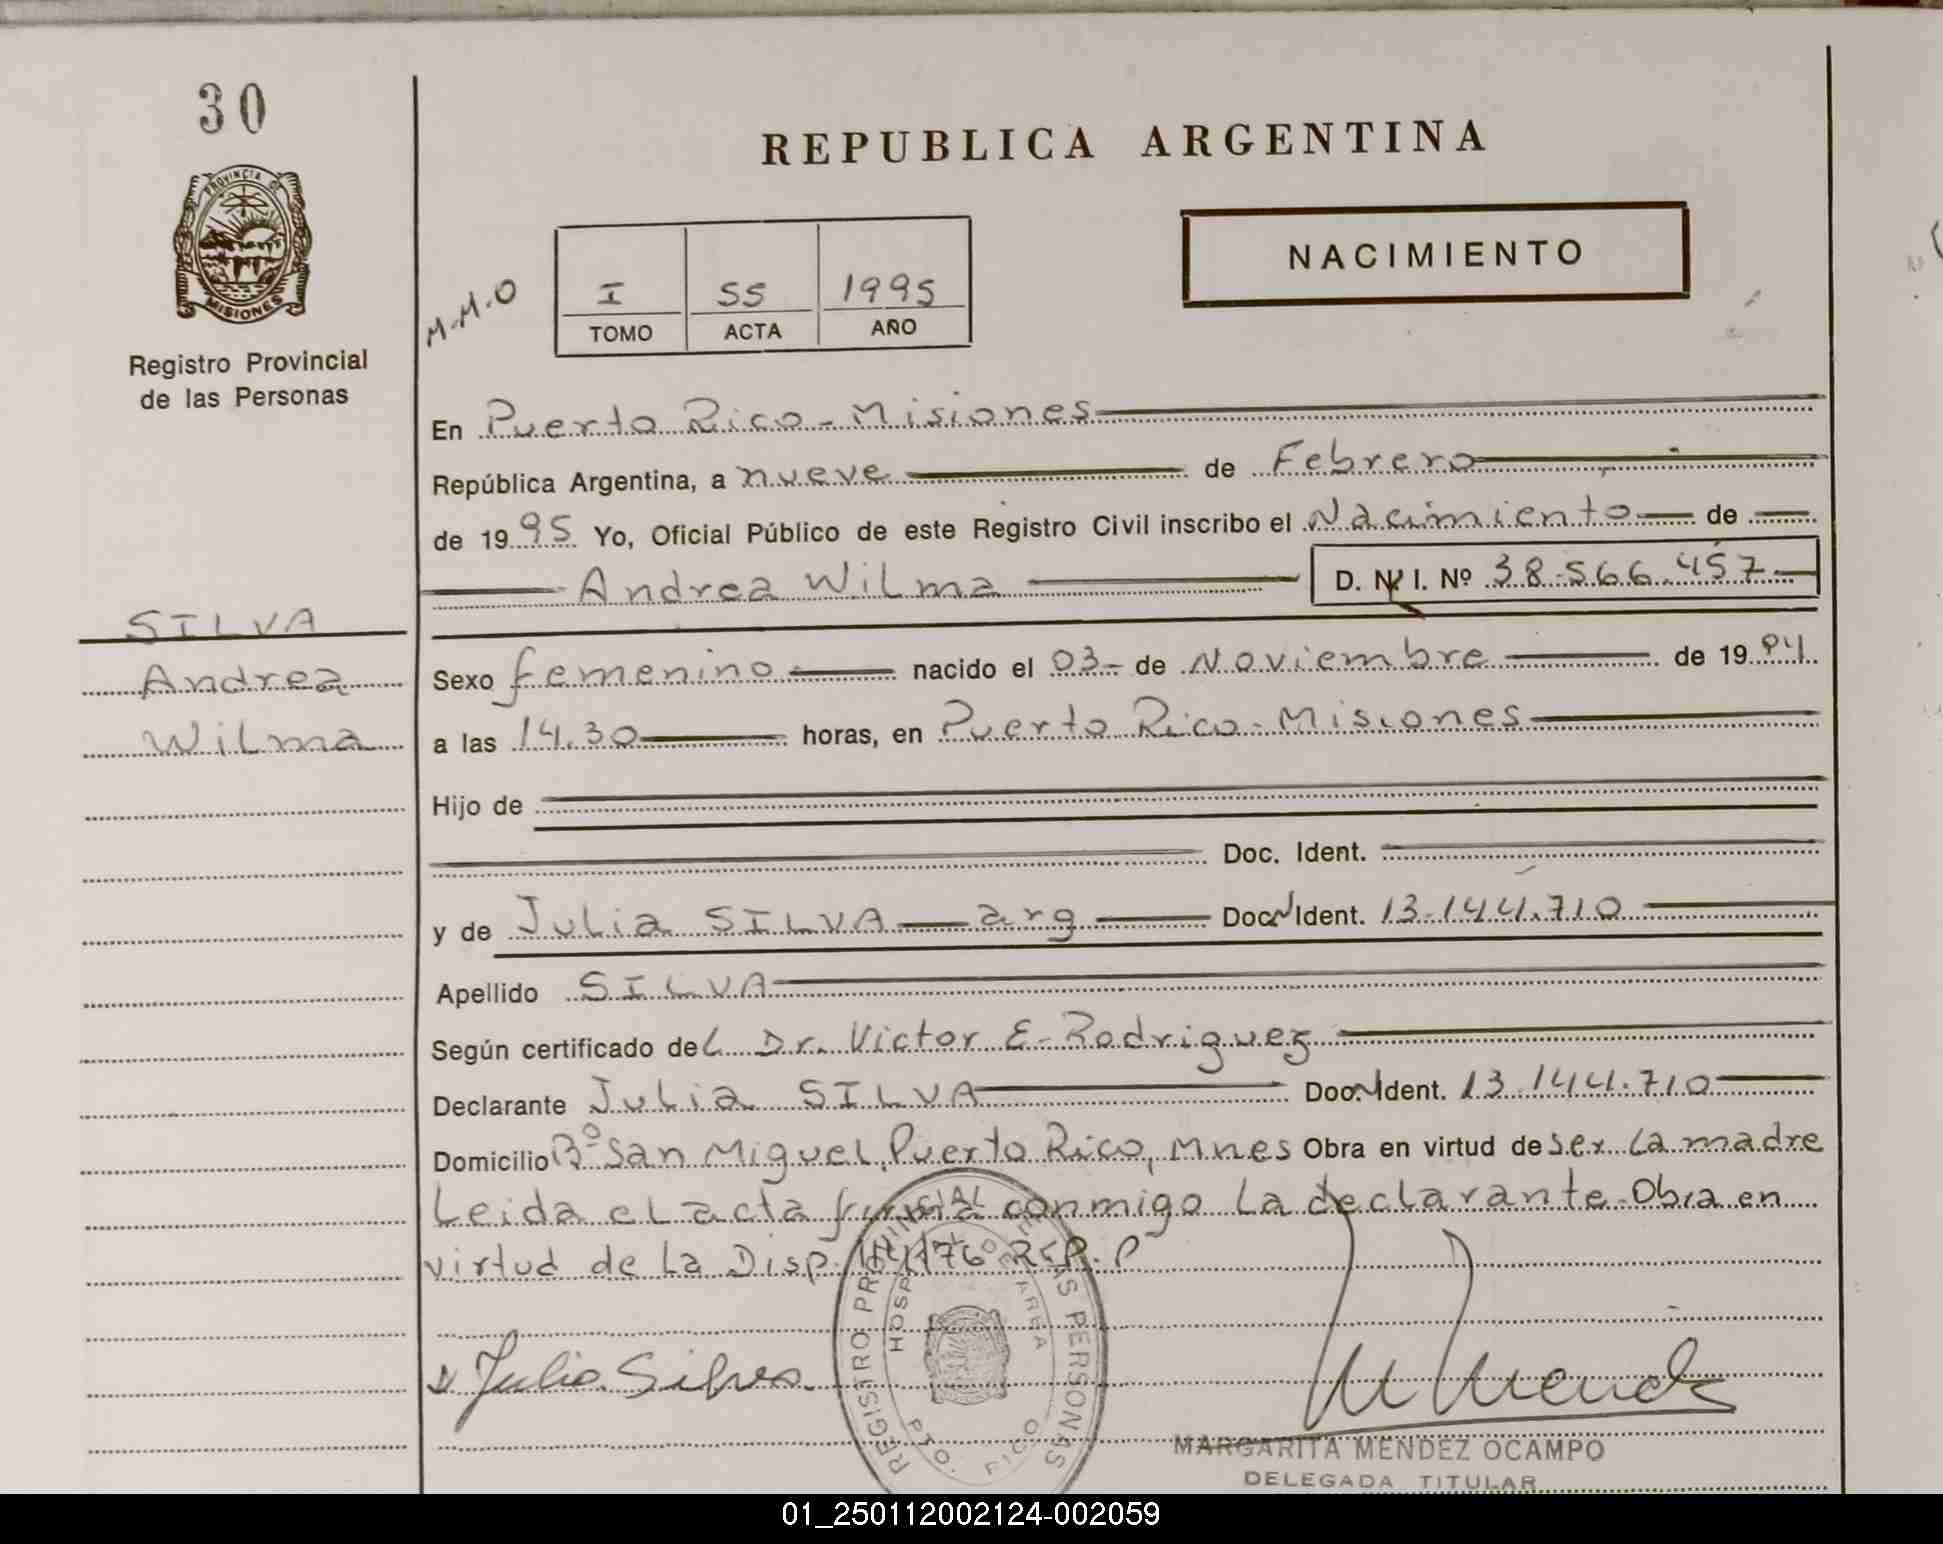 30
PROVINCIA DE
MISIONES
Registro Provincial
de las Personas
REPUBLICA ARGENTINA
NACIMIENTO
M.M.O
I 55 1995
TOMO ACTA AÑO
En Puerto Rico - Misiones
República Argentina, a nueve de Febrero
de 1995 Yo, Oficial Público de este Registro Civil inscribo el Nacimiento de
Andrea Wilma D. N. I. Nº 38.566.457
SILVA
Andrea
Wilma
Sexo femenino nacido el 03- de Noviembre de 1994
a las 14.30 horas, en Puerto Rico - Misiones
Hijo de
Doc. Ident.
y de Julia SILVA arg Doc. N Ident. 13.144.710
Apellido SILVA
Según certificado del Dr. Victor E. Rodriguez
Declarante Julia SILVA Doc. N Ident. 13.144.710
Domicilio Bº San Miguel, Puerto Rico, Mnes Obra en virtud de ser la madre
Leida el acta firma conmigo la declarante. Obra en
virtud de la Disp. 14/76 R.P.P
Julia Silva
REGISTRO PROVINCIAL DE LAS PERSONAS
HOSP. AREA
PTO. RICO
M Mendez
MARGARITA MENDEZ OCAMPO
DELEGADA TITULAR
01_250112002124-002059